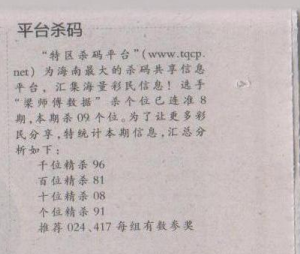 平台杀码
“特区杀码平台”(www.tqcp.
net)为海南最大的杀码共享信息
平台，汇集海量彩民信息！选手
“梁师傅数据”杀个位已连准8
期，本期杀09个位。为了让更多彩
民分享，特统计本期信息，汇总分
析如下：
千位精杀 96
百位精杀 81
十位精杀 08
个位精杀 91
推荐 024,417 每组有数参奖